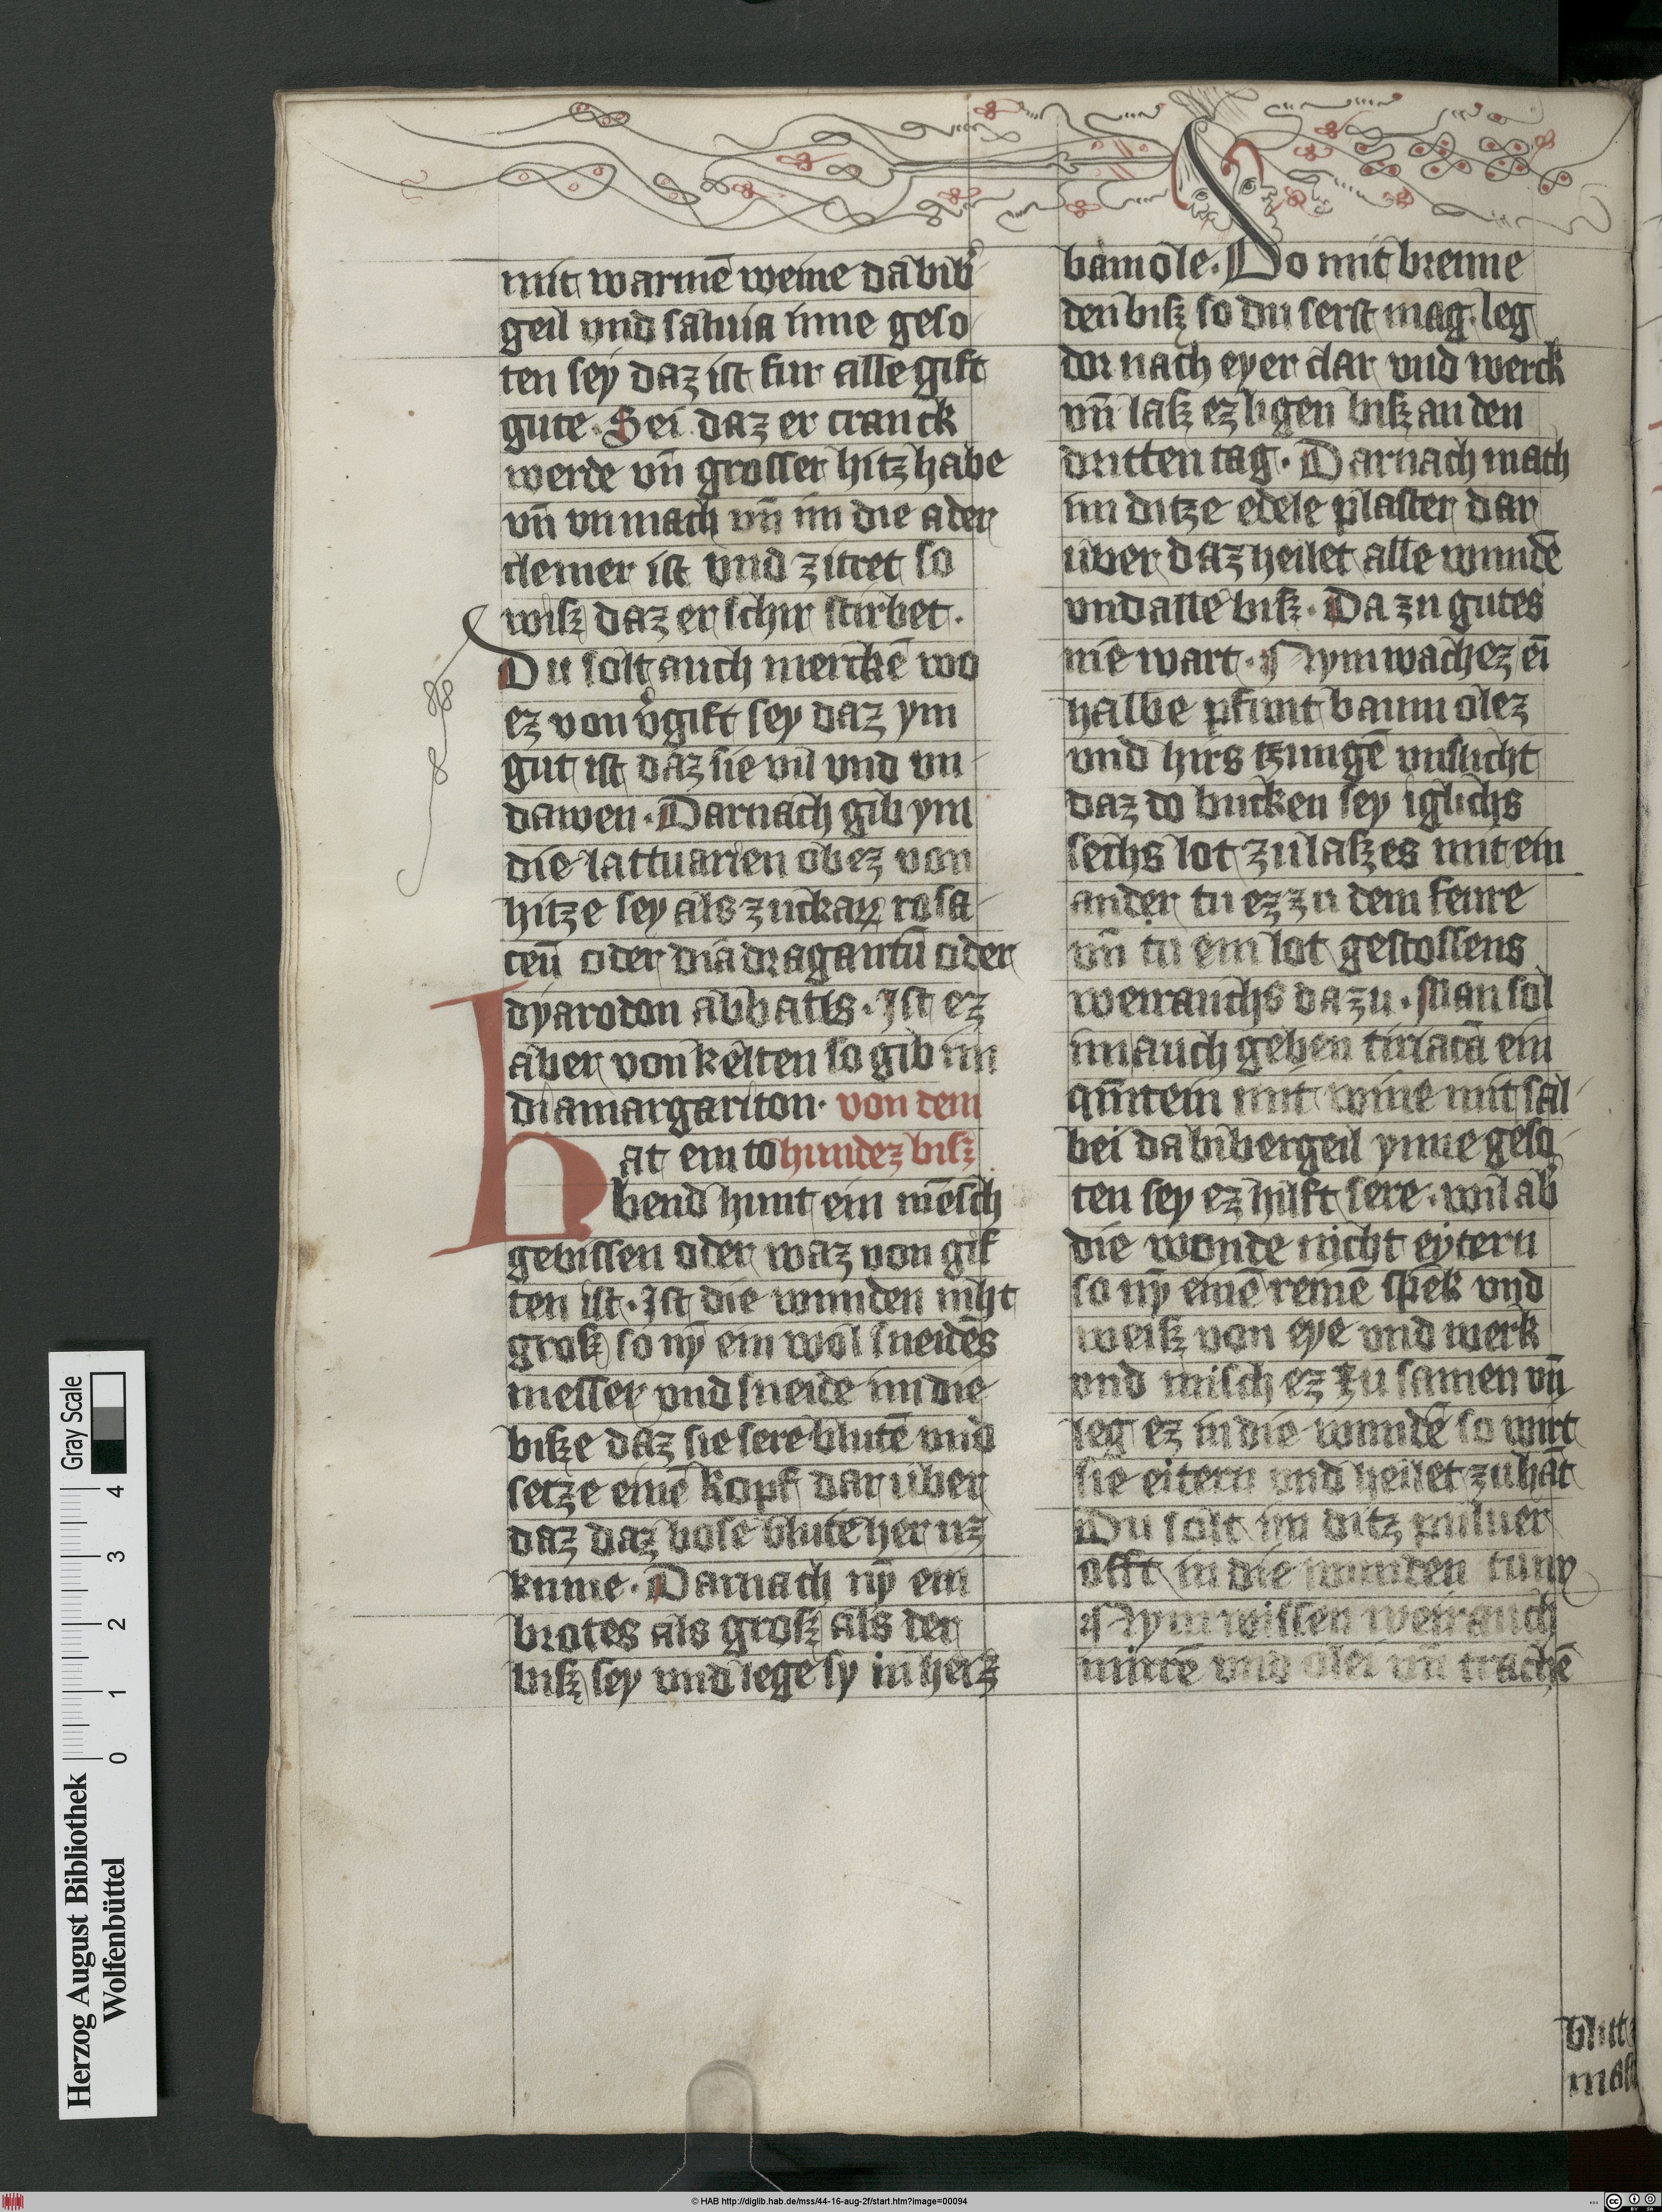 mit warmē weine da bib᷒
geil vnd saluia inne geso
ten sey daz ist fur alle gift
gute. Sei daz er cranck
werde vn̄ grosser hitz habe
vn̄ vnmach vn̄ im die ader
clemer ist vnd zitret so
wisz daz er schir stirbet.
Du solt auch merckē wo
ez von v᷒gift sey daz ym
gut ist daz sie vil vnd vn
dawen. Darnach gib ym
die lattuarien ob ez von
hitze sey als zuckaꝝ rosa
ceū oder dia dragantū oder
dyarodon abbatis. Ist ez
aber von kelten so gib im
diamargariton. von dem
hat ein to hundez bisz
bend hunt ein mēsch
gebissen oder waz von gif
ten ist. Ist die wunden niht
grosz so nȳ ein wol sneidēs
messer vnd sneide im die
bisze daz sie sere blutē vnd
setze einē kopf dar uber
daz daz bose blute her uz
kume. Darnach nȳ ein
brotes als grosz als der
bisz sey vnd lege sy in heiz
bamole. Do mit brenne
den bisz so du serst mag. leg
dor nach eyer clar vnd werck
vn̄ lasz ez ligen bisz an den
dritten tag. Darnach mach
im ditze edele plaster dar
uber daz heilet alle wundē
vnd alle bisz. Da zu gutes
nie wart. Nym wachez ei
halbe pfunt baum olez
vnd hirs tzungē vnslicht
daz do bucken sey iglichs
sechs lot zulasz es mit ein
ander tu ez zu dem feure
vn̄ tu ein lot gestossens
weirauchs da zu. Man sol
im auch geben tiriacā ein
qūntein mit wine mit sal
bei da bibergeil ynne geso
ten sey ez hilft sere. wil ab᷒
die wonde nicht eytern
so nȳ einē reinē spek vnd
weisz von eye vnd werk
vnd misch ez zu samen vn̄
leg ez in die wundē so wirt
sie eitern vnd heilet zuhāt
Du solt im ditz puluer
offt in die wunden tuny
Nym wissen weirauch
mirrē vnd olei vn̄ trachē
blut
Herzog August Bibliothek
Wolfenbüttel
0 1 2 3 4
Gray Scale
© HAB http://diglib.hab.de/mss/44-16-aug-2f/start.htm?image=00094